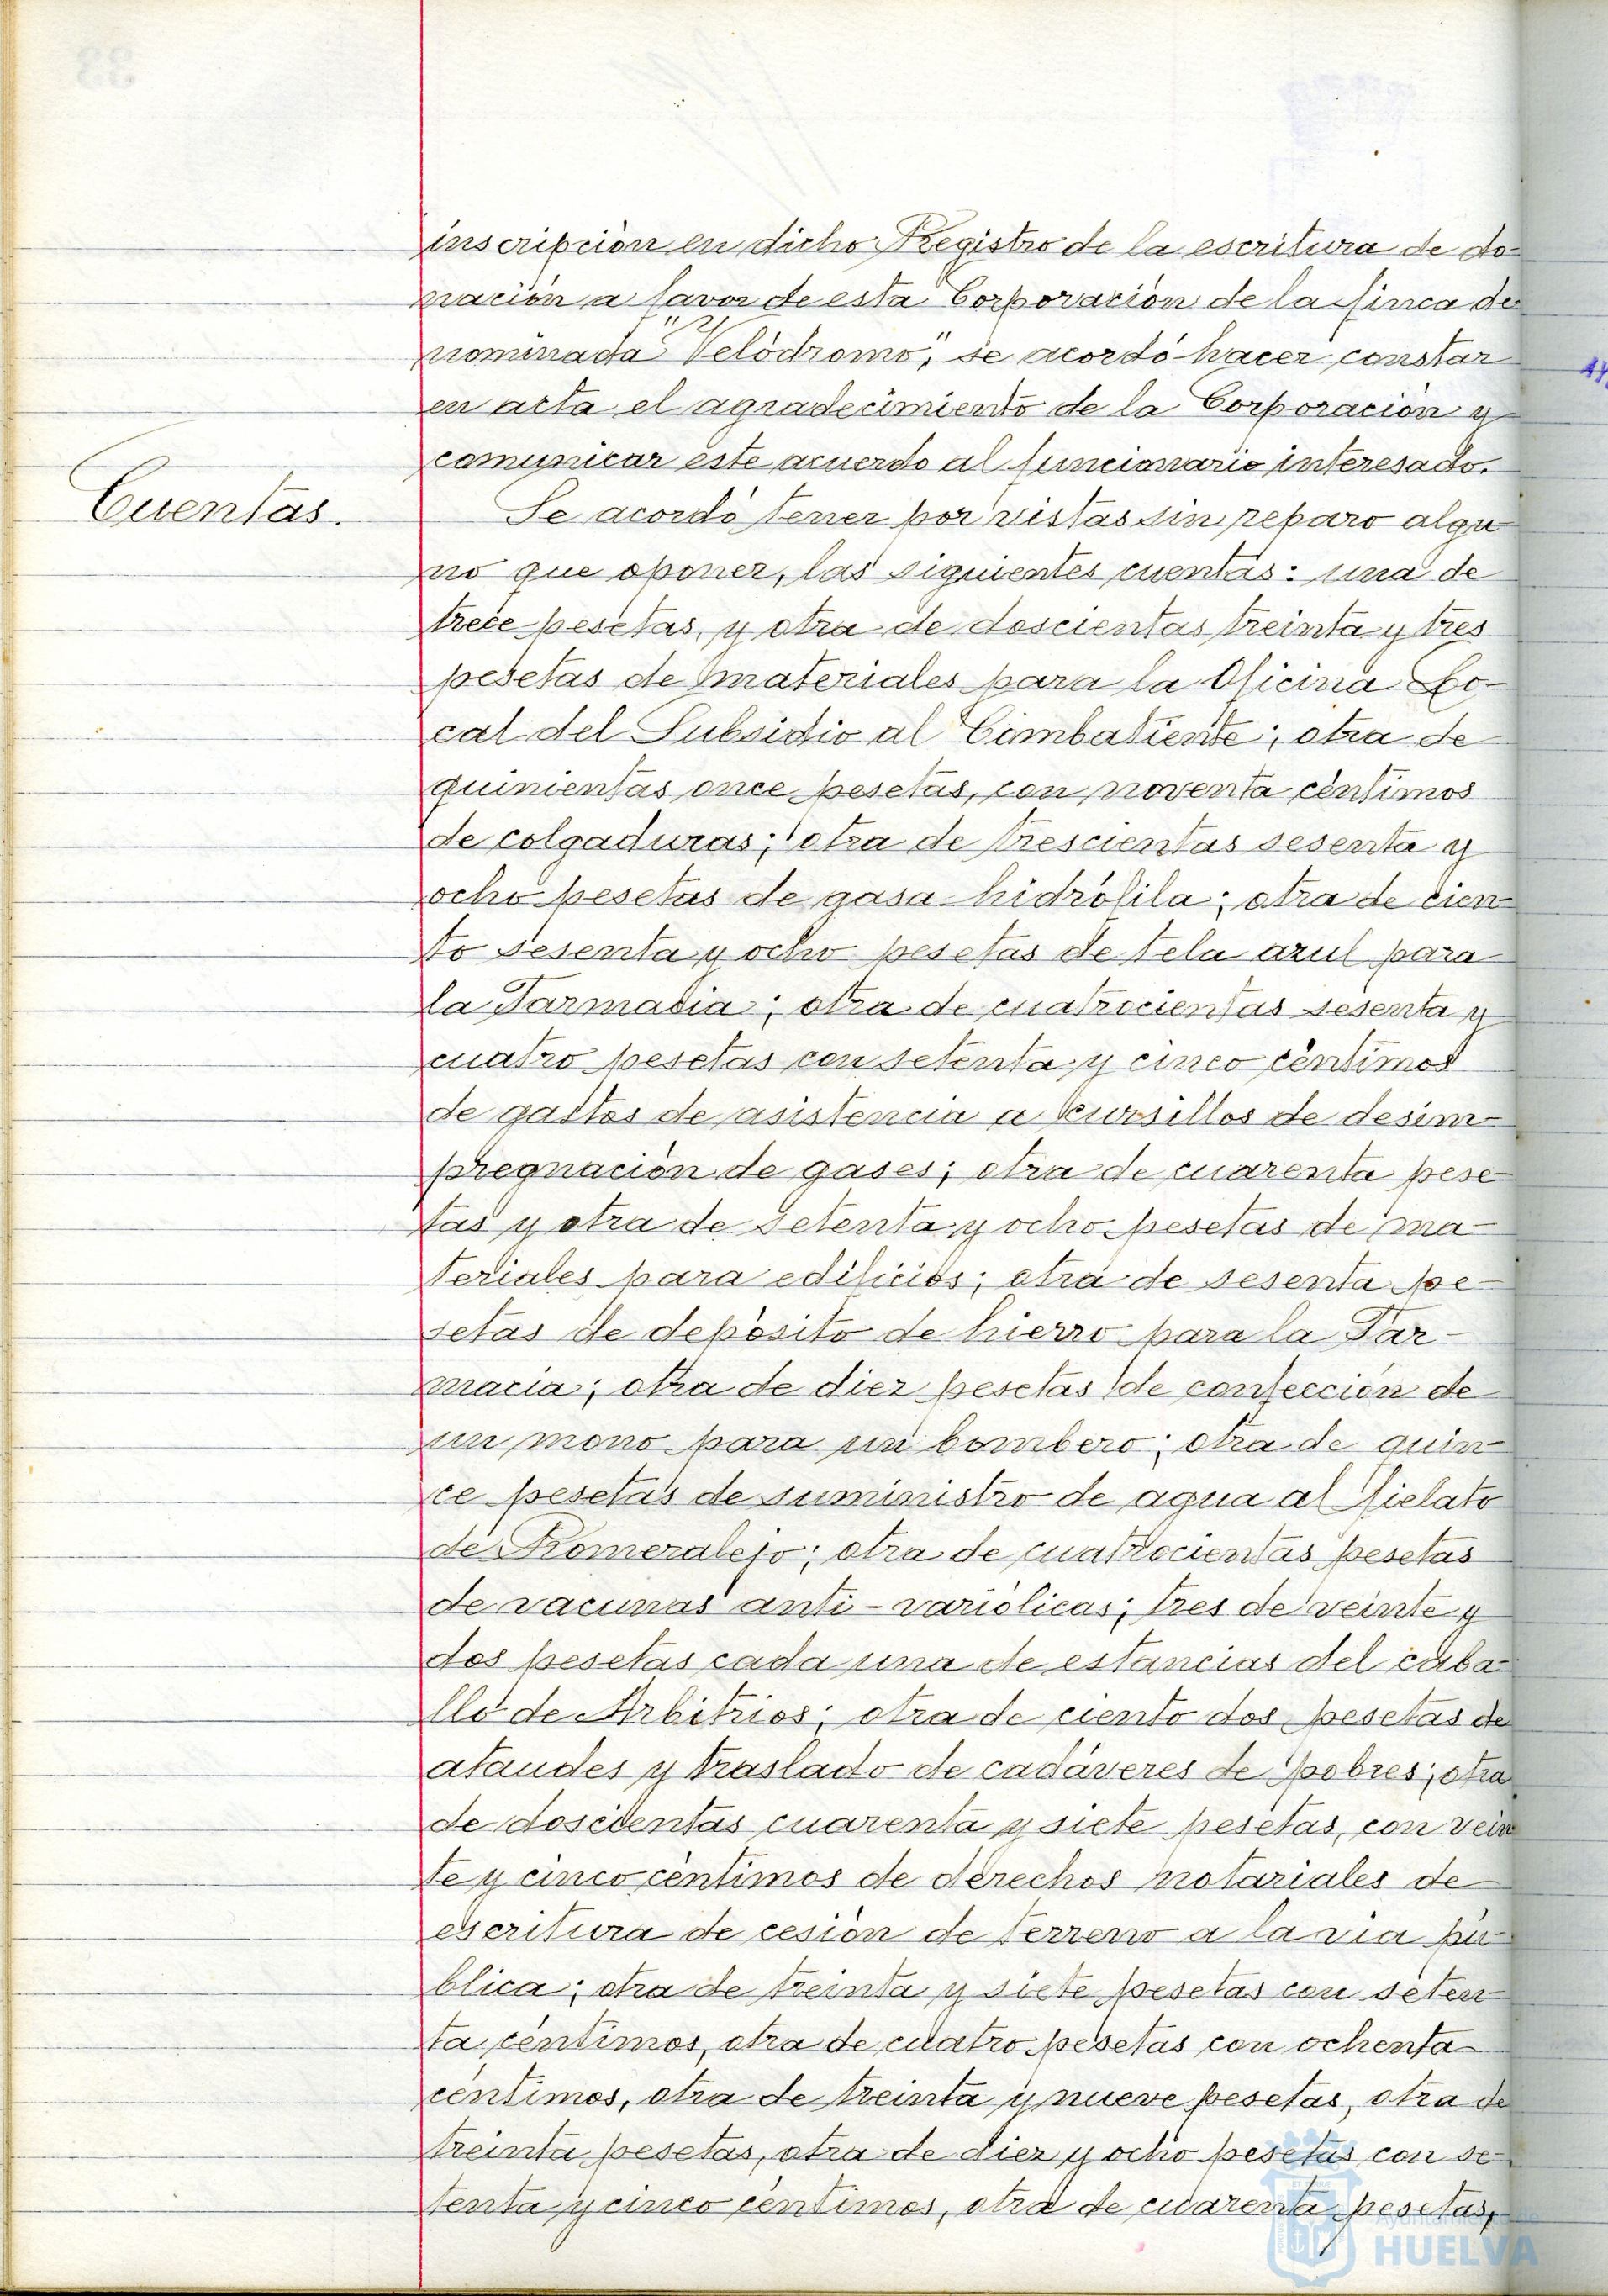 inscripción en dicho Registro de la escritura de do-
nación a favor de esta Corporación de la finca de
nominada "Velódromo", se acordó hacer constar
en acta el agradecimiento de la Corporación y
comunicar este acuerdo al funcionario interesado.
Cuentas.
Se acordó tener por vistas sin reparo algu
no que oponer, las siguientes cuentas: una de
trece pesetas, y otra de doscientas treinta y tres
pesetas de materiales para la Oficina Lo-
cal del Subsidio al Combatiente; otra de
quinientas once pesetas, con noventa céntimos
de colgaduras; otra de trescientas sesenta y
ocho pesetas de gasa hidrófila; otra de cien-
to sesenta y ocho pesetas de tela azul para
la Farmacia; otra de cuatrocientas sesenta y
cuatro pesetas con setenta y cinco céntimos
de gastos de asistencia a cursillos de desim-
pregnación de gases; otra de cuarenta pese-
tas y otra de setenta y ocho pesetas de ma-
teriales para edificios; otra de sesenta pe-
setas de depósito de hierro para la Far-
macia; otra de diez pesetas de confección de
un mono para un bombero; otra de quin-
ce pesetas de suministro de agua al fielato
de Romeralejo; otra de cuatrocientas pesetas
de vacunas anti-variólicas; tres de veinte y
dos pesetas cada una de estancias del caba-
llo de Arbitrios; otra de ciento dos pesetas de
ataudes y traslado de cadáveres de pobres; otra
de doscientas cuarenta y siete pesetas, con vein
te y cinco céntimos de derechos notariales de
escritura de cesión de terreno a la vía pú-
blica; otra de treinta y siete pesetas con seten-
ta céntimos, otra de cuatro pesetas con ochenta
céntimos, otra de treinta y nueve pesetas, otra de
treinta pesetas, otra de diez y ocho pesetas con se-
tenta y cinco céntimos, otra de cuarenta pesetas,
Ayuntamiento de
HUELVA